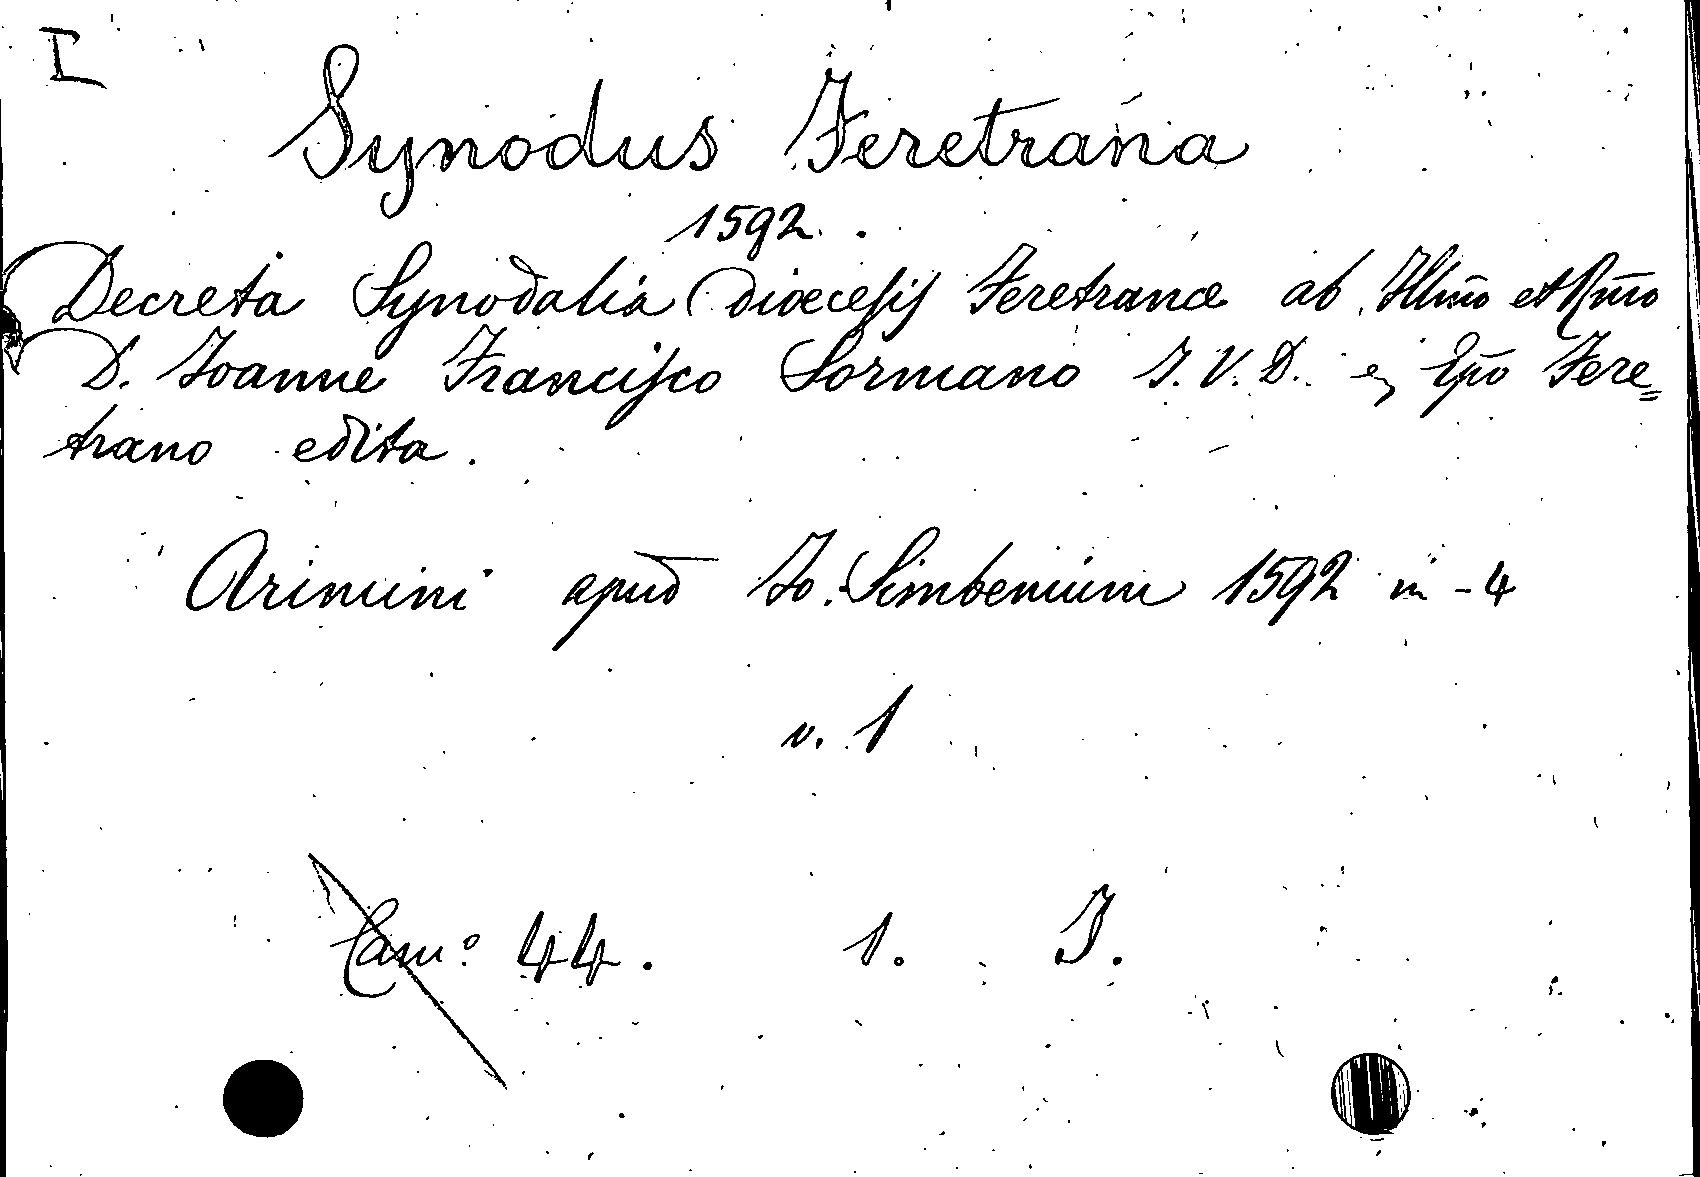 I
Synodus Feretrana
1592.
Decreta Synodalia Diœcesis Feretranæ ab Illmo et Rmo
D. Joanne Francisco Sormano J. V. D. Epo Fere=
trano edita.
Arimini apud Jo. Simbenium 1592 in-4
v. 1
Cam° 44. 1. J.